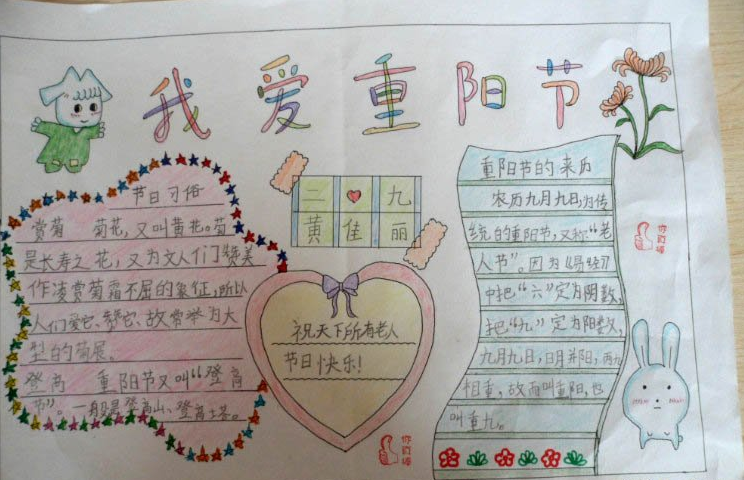 我爱重阳节
节日习俗
赏菊 菊花,又叫黄花。菊
是长寿之花,又为文人们赞美
作凌赏菊霜不屈的象征,所以
人们爱它、赞它、故常举为大
型的菊展。
登高 重阳节又叫“登高
节”。一般是登高山、登高塔。
二❤九
黄佳丽
祝天下所有老人
节日快乐!
重阳节的来历
农历九月九日,为传
统的重阳节,又称“老
人节”。因为《易经》
中把“六”定为阴数,
把“九”定为阳数,
九月九日,日月并阳,两九
相重,故而叫重阳,也
叫重九。